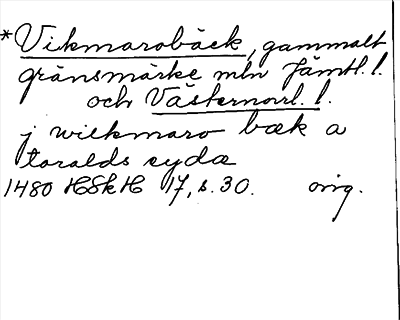 *Vikmarobäck, gammalt
gränsmärke mln Jämtl. l.
och Västernorrl. l.
j wikmaro bæk a
toralds sydæ
1480 HSkH 17, s. 30. orig.